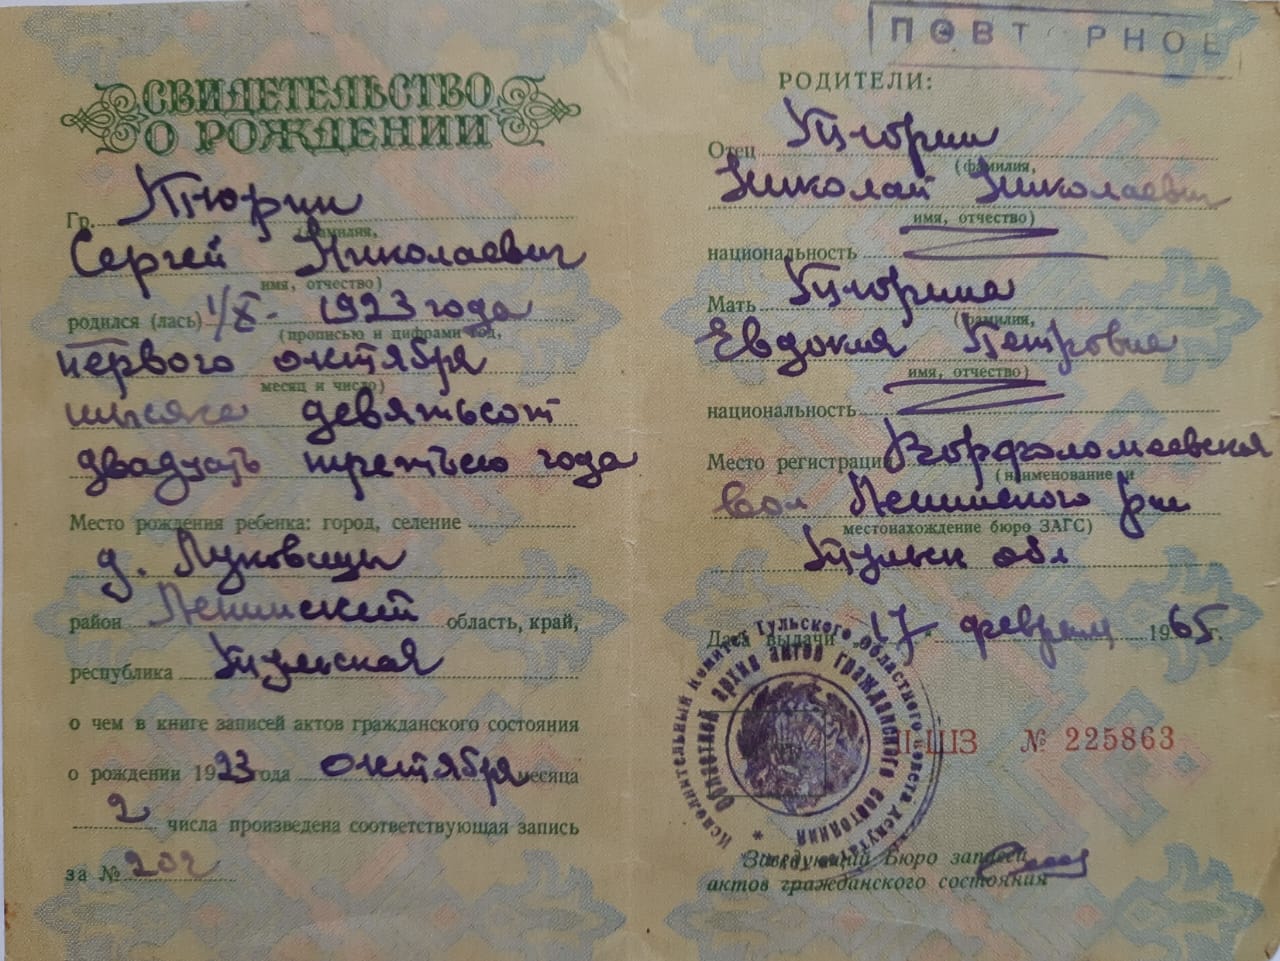 СВИДЕТЕЛЬСТВО
О РОЖДЕНИИ
Гр. Тюрин
(фамилия,
Сергей Николаевич
имя, отчество)
родился (лась) 1/X- 1923 года
(прописью и цифрами год,
первого октября
месяц и число)
тысяча девятьсот
двадцать третьего года
Место рождения ребенка: город, селение
д. Луковицы
район Ленинский область, край,
республика Тульская
о чем в книге записей актов гражданского состояния
о рождении 1923 года октября месяца
2 числа произведена соответствующая запись
за №
ПОВТОРНОЕ
РОДИТЕЛИ:
Отец Тюрин
(фамилия,
Николай Николаевич
имя, отчество)
национальность
Мать Тюрина
(фамилия,
Евдокия Петровна
имя, отчество)
национальность
Место регистрации Варфоломеевская
(наименование и
вол Ленинского р-н
местонахождение бюро ЗАГС)
Тульск обл
Дата выдачи 17 февраля 1965 г.
Исполнительный Комитет Тульского областного совета депутатов
Областной архив актов гражданского состояния
№ 225863
Заведующий Бюро записей
актов гражданского состояния